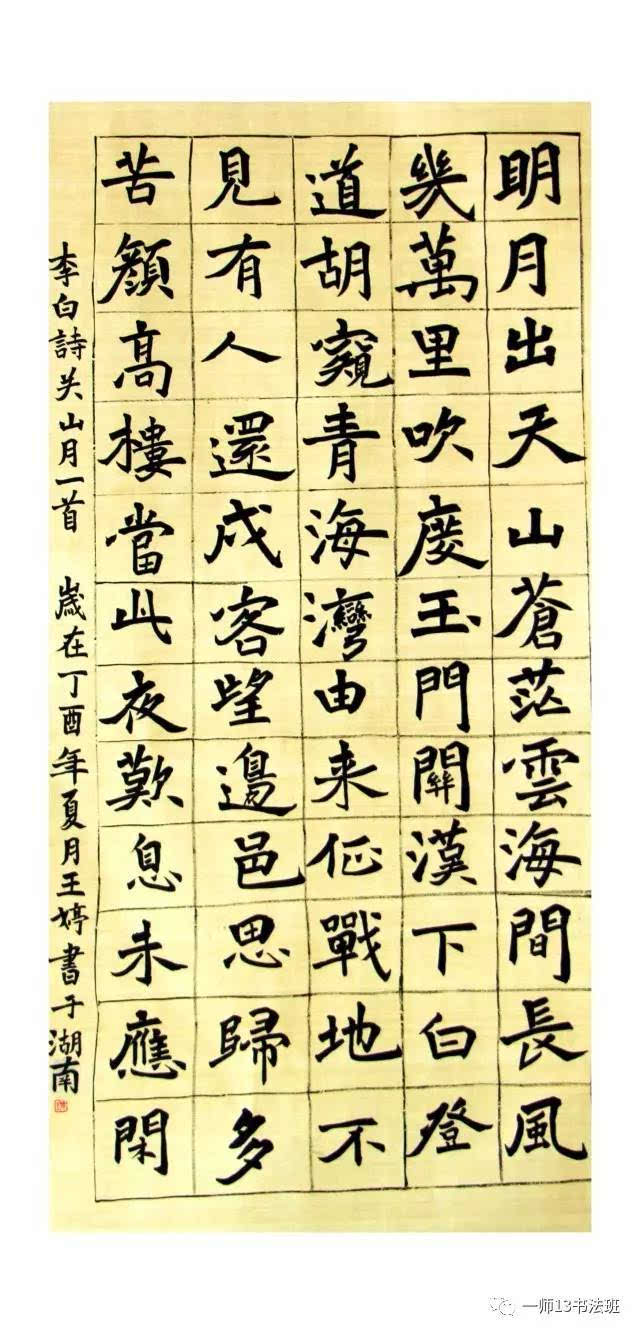 明月出天山蒼茫雲海間長風
幾萬里吹度玉門關漢下白登
道胡窺青海灣由来征戰地不
見有人還戍客望邊邑思歸多
苦顏髙樓當此夜歎息未應閑
李白詩关山月一首 歲在丁酉年夏月王婷書于湖南
一师13书法班